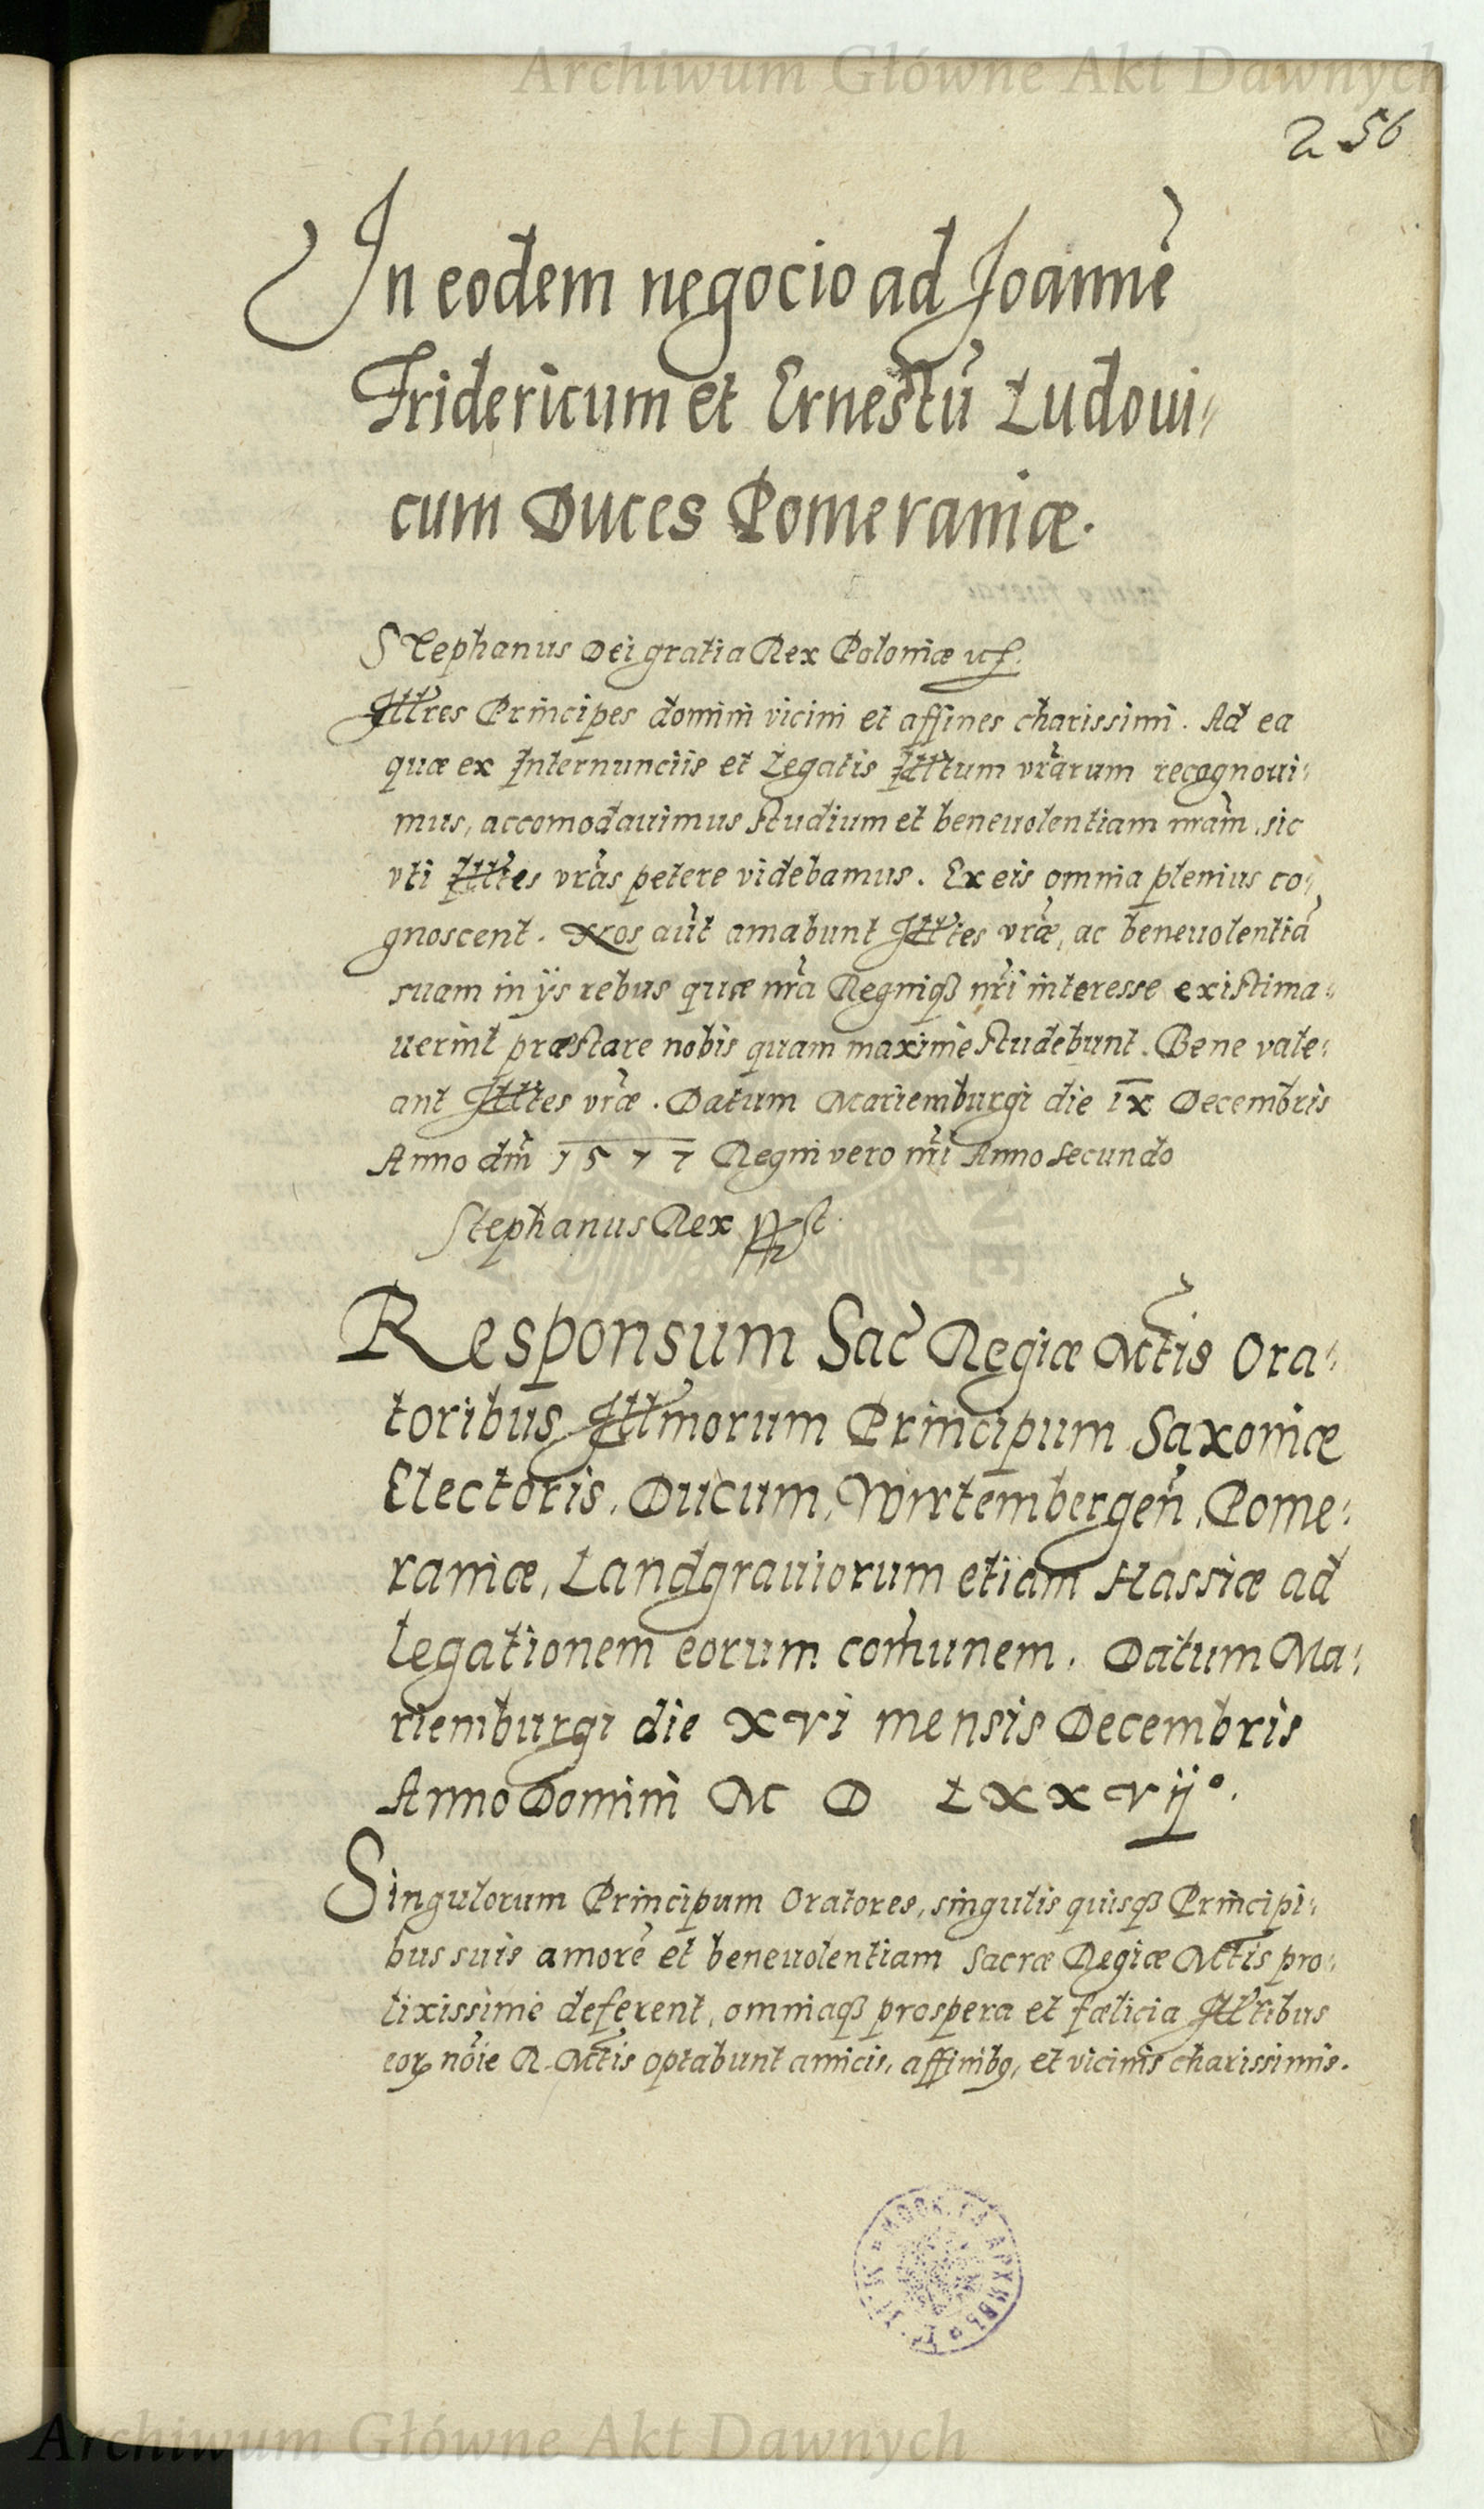 Archiwum Główne Akt Dawnych
256
In eodem negocio ad Joannē
Fridericum et Ernestū Ludoui⸗
cum Duces Pomeraniæ.
Stephanus Dei gratia Rex Poloniæ
Illres Principes domini vicini et affines charissimi. Ad ea
quæ ex Internunciis et Legatis Illtum vrarum recognoui⸗
mus, accomodauimus studium et beneuolentiam nram, sic
vti Illtes vras petere videbamus. Ex eis omnia plenius co⸗
gnoscent. Nos aūt amabunt Illtes vræ, ac beneuolentiā
suam in ijs rebus quæ nra Regniqꝫ nri interesse existima⸗
uerint præstare nobis quam maxime studebunt. Bene vale⸗
ant Illtes vræ. Datum Mariemburgi die ix Decembris
Anno dm̄ 1577 Regni vero nri Anno secundo
Stephanus Rex sst.
Responsum Sac Regiæ Mtis Ora⸗
toribus Illmorum Principum Saxoniæ
Electoris, Ducum, Wirtembergen̄, Pome⸗
raniæ, Landgrauiorum etiam Hassiæ ad
legationem eorum com̄unem. Datum Ma⸗
riemburgi die xvi mensis Decembris
Anno Domini M D LXXVII°.
Singulorum Principum Oratores, singulis quisqꝫ Principi⸗
bus suis amorē et beneuolentiam Sacræ Regiæ Mtis pro⸗
lixissime deferent, omniaqꝫ prospera et fælicia Illtibus
eoꝝ nōie R. Mtis optabunt amicis, affinibꝯ, et vicinis charissimis.
Archiwum Główne Akt Dawnych